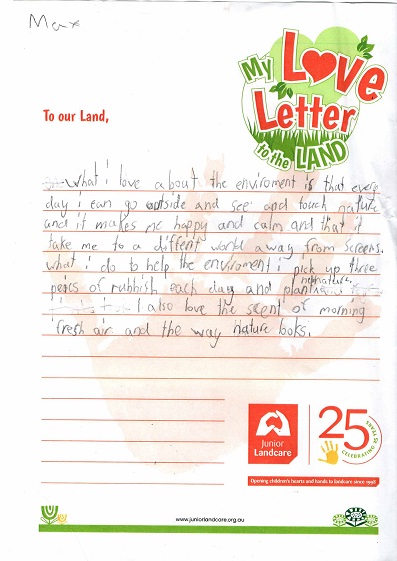 Max
My Love
Letter
to the LAND
To our Land,
What i love about the enviroment is that every
day i can go outside and see and touch nature
and it makes me happy and calm and that it
take me to a diffent world away from screens.
what i do to help the enviroment i pick up three
peics of rubbish each day and plant
nature.
I also love the scent of morning
fresh air and the way nature looks.
Junior
Landcare
25
CELEBRATING 25 YEARS
Opening children's hearts and hands to landcare since 1998
www.juniorlandcare.org.au